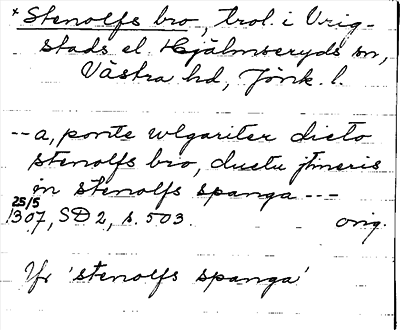 * Stenolfs bro, trol. i Vrig-
stads el. Hjälmseryds sn,
Västra hd, Jönk. l.
-- a, ponte wlgariter dicto
stenolfs bro, ductu jtineris
in stenolfs spanga ---
25/5
1307, SD 2, s. 503. orig.
Yr 'stenolfs spanga'